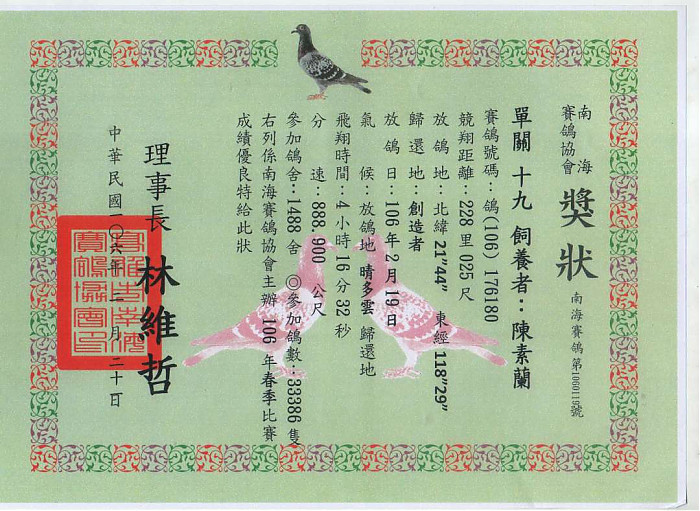 南海
賽鴿協會
獎狀
南海賽鴿第1060119號
單關 十九 飼養者：陳素蘭
賽鴿號碼：鴿(106) 176180
競翔距離：228 里 025 尺
放鴿地：北緯 21"44" 東經 118"29"
歸還地：創造者
放鴿日：106 年 2 月 19 日
氣候：放鴿地 晴多雲 歸還地
飛翔時間：4 小時 16 分 32 秒
分速：888.900 公尺
參加鴿舍：1488 舍 ◎參加鴿數：33386 隻
右列係南海賽鴿協會主辦 106 年春季比賽
成績優良特給此狀
理事長 林維哲
中華民國一○六年二月二十日